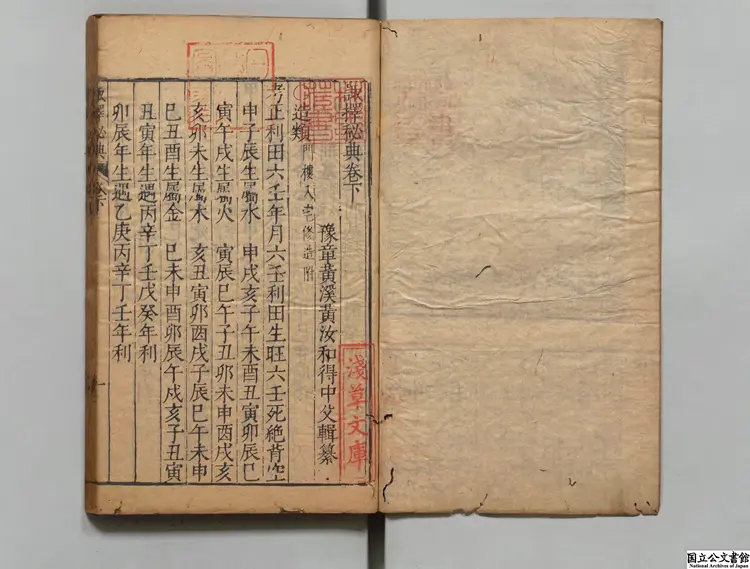 諏擇秘典卷下
豫章黃溪黃汝和得中父輯纂
造類 門樓入宅修造附
考正利田六壬年月六壬利田生旺六壬死絕背空
申子辰生屬水 申戌亥子午未酉丑寅卯辰巳
寅午戌生屬火 寅辰巳午子丑卯未申酉戌亥
亥卯未生屬木 亥丑寅卯酉戌子辰巳午未申
巳丑酉生屬金 巳未申酉卯辰午戌亥子丑寅
丑寅年生遇丙辛丁壬戊癸年利
卯辰年生遇乙庚丙辛丁壬年利
諏擇秘典 卷下
一
淺草文庫
国立公文書館
National Archives of Japan